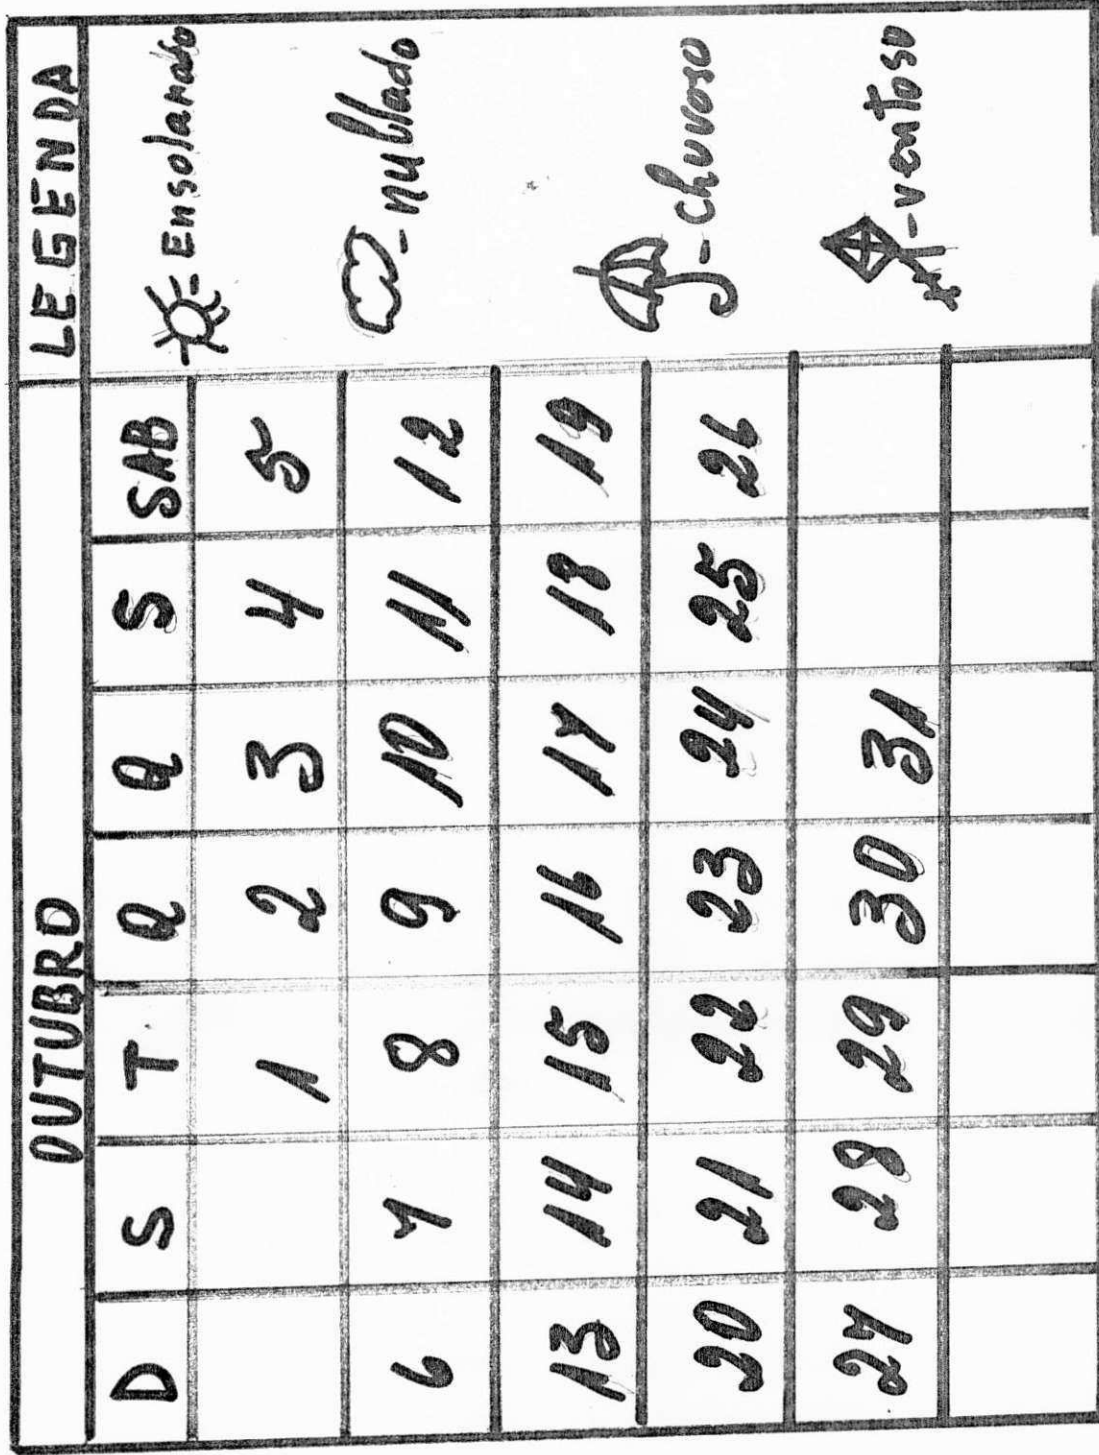 OUTUBRO LEGENDA
D S T Q Q S SAB
1 2 3 4 5
6 7 8 9 10 11 12
13 14 15 16 17 18 19
20 21 22 23 24 25 26
27 28 29 30 31
- Ensolarado
- nublado
- chuvoso
- ventoso